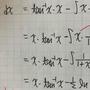 dx = tan⁻¹x · x - ∫x ·
= x · tan⁻¹x - ∫x · 1
= x · tan⁻¹x - ∫ 1+x
= x · tan⁻¹x - ½ ln